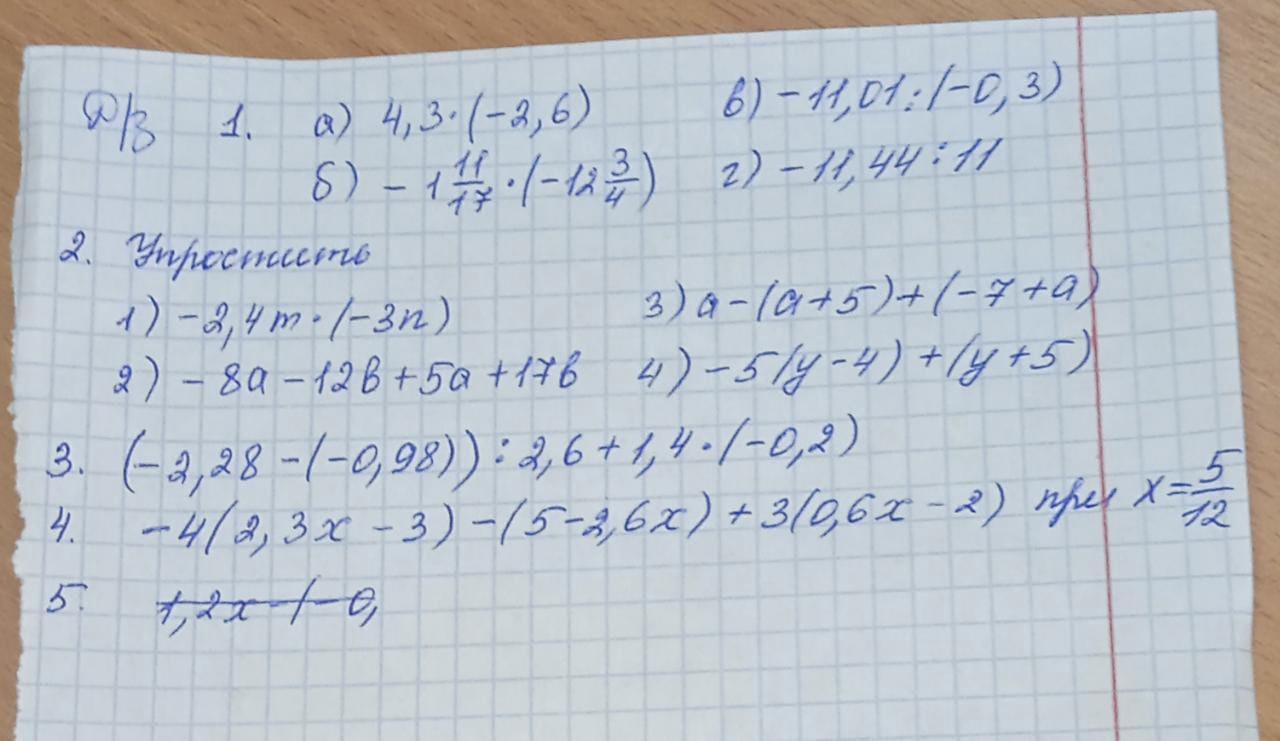 Д/З 1. а) 4,3·(-2,6) в) -11,01:(-0,3)
б) -1 11/17 · (-12 3/4) г) -11,44:11
2. Упростить
1) -2,4m·(-3n) 3) a-(a+5)+(-7+a)
2) -8a-12b+5a+17b 4) -5(y-4)+(y+5)
3. (-2,28-(-0,98)):2,6+1,4·(-0,2)
4. -4(2,3x-3)-(5-2,6x)+3(0,6x-2) при x=5/12
5. 1,2x-(-0,